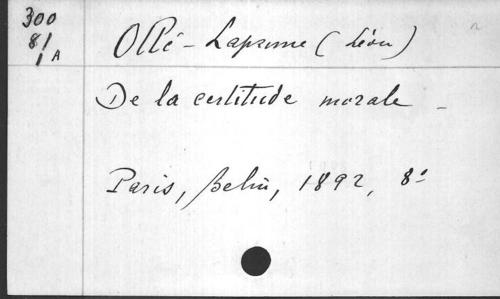 300
81
1 A
Ollé-Laprune (Léon)
De la certitude morale -
Paris, Belin, 1892, 8°